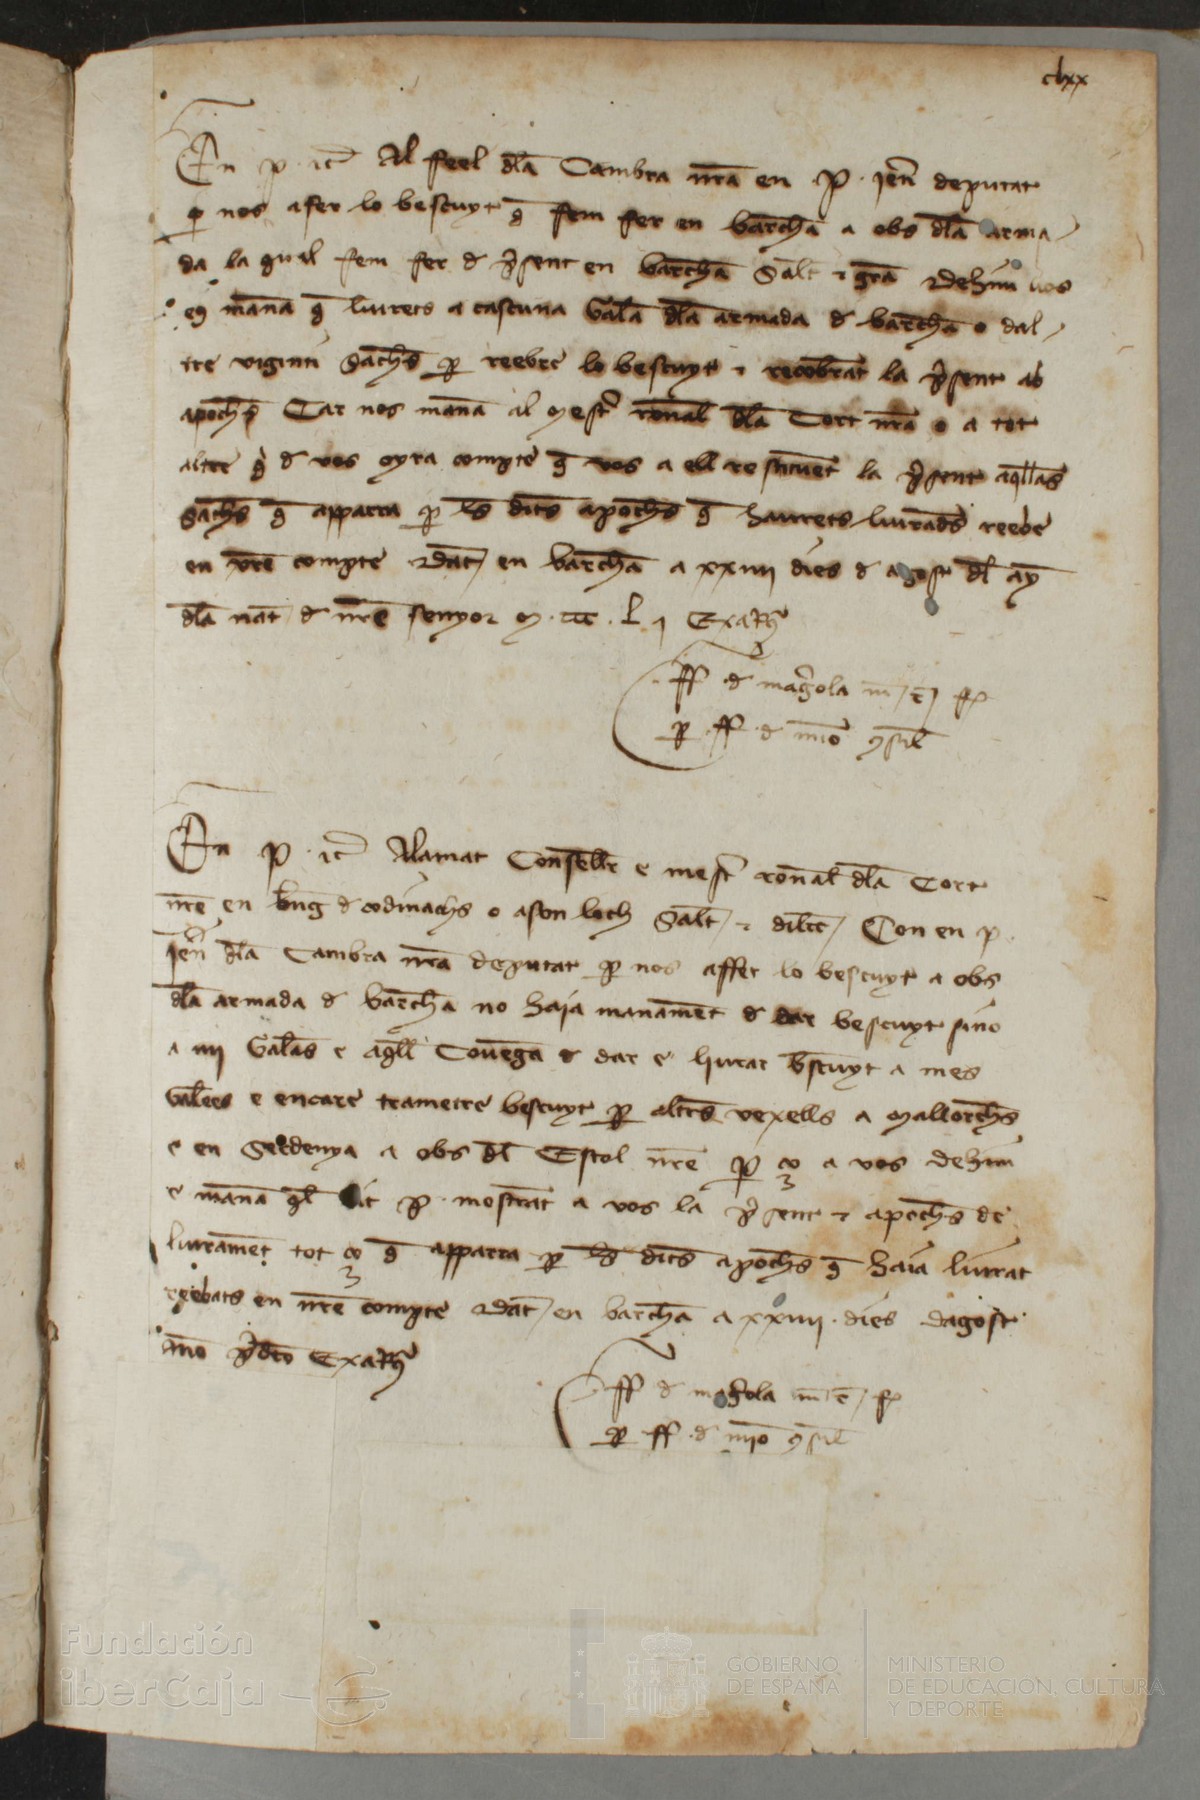 clxx
En p. etc Al feel dla Cambra nra en .P. jen deputat
p nos afer lo bescuyt q fem fer en barchna a obs dla arma
da la qual fem fer d psent en barchna Salt e gra Dehim vos
eus mana q liurets a cascuna Galea dla armada d barchna o dal
tre viginti Sachs p reebre lo bescuyt e recobrat la psent ab
apochs Car nos mana al mestr ronal dla Cort nra o a tot
altre q d vos oyra compte q vos a ell restituent la psent aqllas
Sachs q apparra p les dits apochs q haurets liurades reebe
en vre compte Dat en barchna a xxiiii dies d agost dl any
dla nat d nre senyor M. ccc. L j Exa
ff. d magrola
p ff. d mio csil
En P. etc Al amat Conseller e mestr ronal dla Cort
nre en bng d codinachs o a son loch Salt e dilcc Con en p.
jen dla Cambra nra deputat p nos affer lo bescuyt a obs
dla armada d barchna no haja manament d dar bescuyt sino
a iiii Galeas e aqll Covenga d dar e liurar bscuyt a mes
Galees e encare trametre bescuyt p altres vexells a Mallorchs
e en Serdenya a obs dl Estol nre p ço a vos dehim
e mana ql dit P. mostrat a vos la psent e apochs de
liurament tot ço q apparra p les dits apochs q haia liurat
reebats en nre compte Dat en barchna a xxiiii. dies dagost
Ano pdco Exa
ff d magrola
p ff. d mio csil
Fundación
iberCaja
GOBIERNO
DE ESPAÑA
MINISTERIO
DE EDUCACIÓN, CULTURA
Y DEPORTE